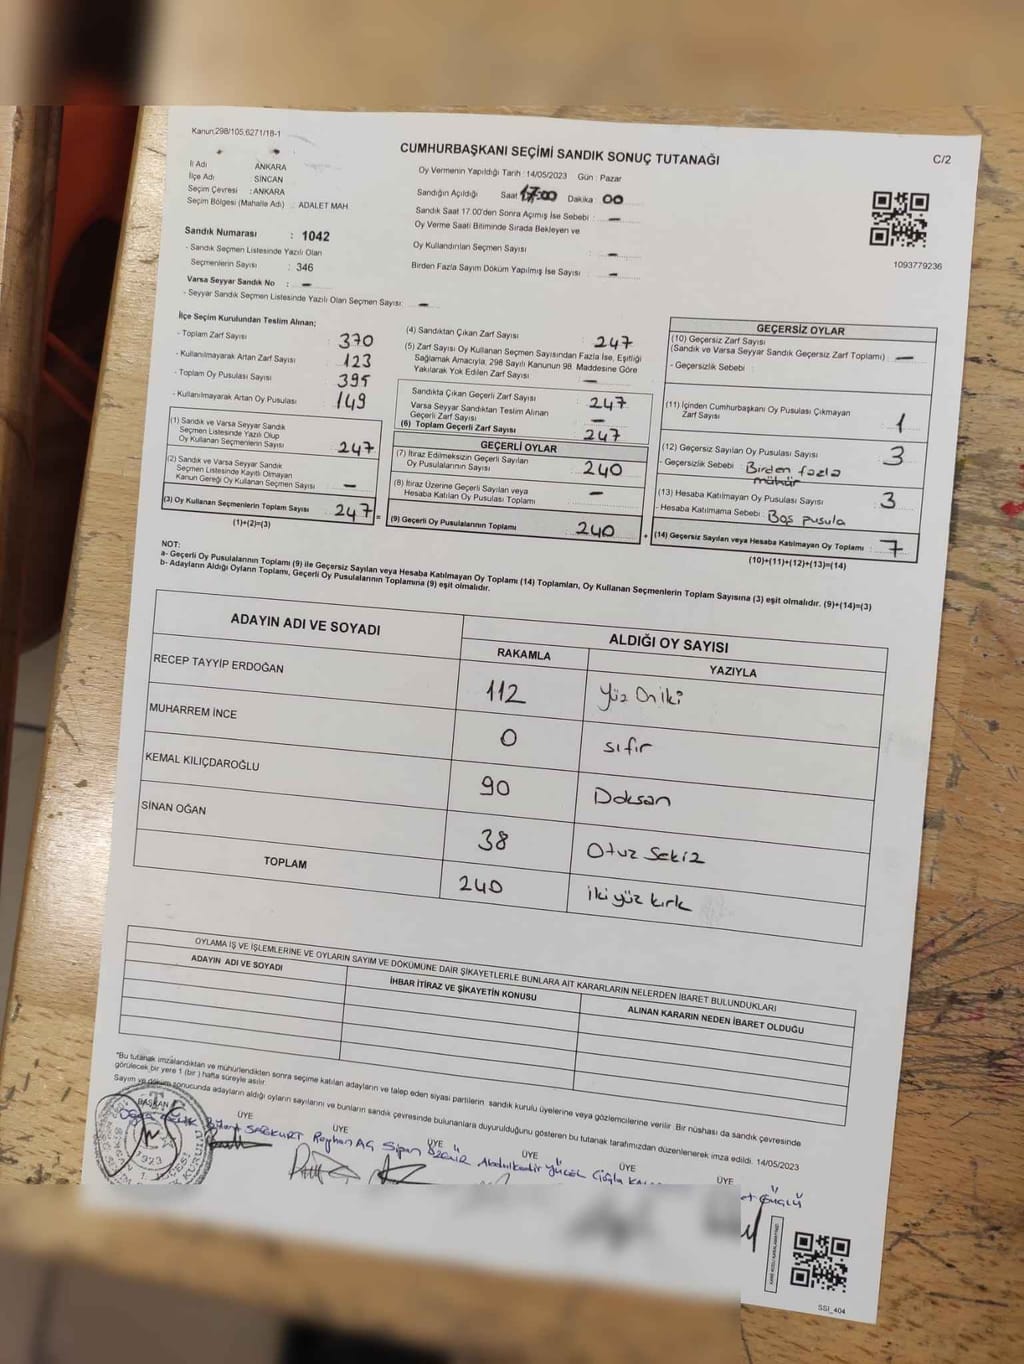 Kanun:298/105,6271/18-1
CUMHURBAŞKANI SEÇİMİ SANDIK SONUÇ TUTANAĞI
C/2
İl Adı ANKARA
İlçe Adı SİNCAN
Seçim Çevresi : ANKARA
Seçim Bölgesi (Mahalle Adı) : ADALET MAH
Oy Vermenin Yapıldığı Tarih : 14/05/2023 Gün : Pazar
Sandığın Açıldığı Saat 17:00 Dakika : 00
Sandık Saat 17.00'den Sonra Açımış İse Sebebi : –
Oy Verme Saati Bitiminde Sırada Bekleyen ve
Oy Kullandırılan Seçmen Sayısı : –
Birden Fazla Sayım Döküm Yapılmış İse Sayısı : –
1093779236
Sandık Numarası : 1042
- Sandık Seçmen Listesinde Yazılı Olan
Seçmenlerin Sayısı : 346
Varsa Seyyar Sandık No : –
- Seyyar Sandık Seçmen Listesinde Yazılı Olan Seçmen Sayısı: –
İlçe Seçim Kurulundan Teslim Alınan;
- Toplam Zarf Sayısı 370
- Kullanılmayarak Artan Zarf Sayısı 123
- Toplam Oy Pusulası Sayısı 395
- Kullanılmayarak Artan Oy Pusulası 149
(1) Sandık ve Varsa Seyyar Sandık
Seçmen Listesinde Yazılı Olup
Oy Kullanan Seçmenlerin Sayısı 247
(2) Sandık ve Varsa Seyyar Sandık
Seçmen Listesinde Kayıtlı Olmayan
Kanun Gereği Oy Kullanan Seçmen Sayısı –
(3) Oy Kullanan Seçmenlerin Toplam Sayısı 247
(1)+(2)=(3)
(4) Sandıktan Çıkan Zarf Sayısı 247
(5) Zarf Sayısı Oy Kullanan Seçmen Sayısından Fazla İse, Eşitliği
Sağlamak Amacıyla, 298 Sayılı Kanunun 98. Maddesine Göre
Yakılarak Yok Edilen Zarf Sayısı –
Sandıkta Çıkan Geçerli Zarf Sayısı 247
Varsa Seyyar Sandıktan Teslim Alınan
Geçerli Zarf Sayısı –
(6) Toplam Geçerli Zarf Sayısı 247
GEÇERLİ OYLAR
(7) İtiraz Edilmeksizin Geçerli Sayılan
Oy Pusulalarının Sayısı 240
(8) İtiraz Üzerine Geçerli Sayılan veya
Hesaba Katılan Oy Pusulası Toplamı –
(9) Geçerli Oy Pusulalarının Toplamı 240
GEÇERSİZ OYLAR
(10) Geçersiz Zarf Sayısı
(Sandık ve Varsa Seyyar Sandık Geçersiz Zarf Toplamı) –
- Geçersizlik Sebebi :
(11) İçinden Cumhurbaşkanı Oy Pusulası Çıkmayan
Zarf Sayısı 1
(12) Geçersiz Sayılan Oy Pusulası Sayısı 3
- Geçersizlik Sebebi : Birden fazla
mühür
(13) Hesaba Katılmayan Oy Pusulası Sayısı 3
- Hesaba Katılmama Sebebi : Boş pusula
(14) Geçersiz Sayılan veya Hesaba Katılmayan Oy Toplamı 7
(10)+(11)+(12)+(13)=(14)
NOT:
a- Geçerli Oy Pusulalarının Toplamı (9) ile Geçersiz Sayılan veya Hesaba Katılmayan Oy Toplamı (14) Toplamları, Oy Kullanan Seçmenlerin Toplam Sayısına (3) eşit olmalıdır. (9)+(14)=(3)
b- Adayların Aldığı Oyların Toplamı, Geçerli Oy Pusulalarının Toplamına (9) eşit olmalıdır.
ADAYIN ADI VE SOYADI
ALDIĞI OY SAYISI
RAKAMLA YAZIYLA
RECEP TAYYİP ERDOĞAN 112 Yüz Oniki
MUHARREM İNCE 0 sıfır
KEMAL KILIÇDAROĞLU 90 Doksan
SİNAN OĞAN 38 Otuz Sekiz
TOPLAM 240 iki yüz kırk
OYLAMA İŞ VE İŞLEMLERİNE VE OYLARIN SAYIM VE DÖKÜMÜNE DAİR ŞİKAYETLERLE BUNLARA AİT KARARLARIN NELERDEN İBARET BULUNDUKLARI
ADAYIN ADI VE SOYADI
İHBAR İTİRAZ VE ŞİKAYETİN KONUSU
ALINAN KARARIN NEDEN İBARET OLDUĞU
*Bu tutanak imzalandıktan ve mühürlendikten sonra seçime katılan adayların ve talep eden siyasi partilerin sandık kurulu üyelerine veya gözlemcilerine verilir. Bir nüshası da sandık çevresinde
görülecek bir yere 1 (bir) hafta süreyle asılır.
Sayım ve döküm sonucunda adayların aldığı oyların sayılarını ve bunların sandık çevresinde bulunanlara duyurulduğunu gösteren bu tutanak tarafımızdan düzenlenerek imza edildi. 14/05/2023
BAŞKAN ÜYE ÜYE ÜYE ÜYE ÜYE ÜYE
Reyhan AG Sipan ÖZDEMİR Abdulkadir YÜCEL Çiğla
1923
SSI_404